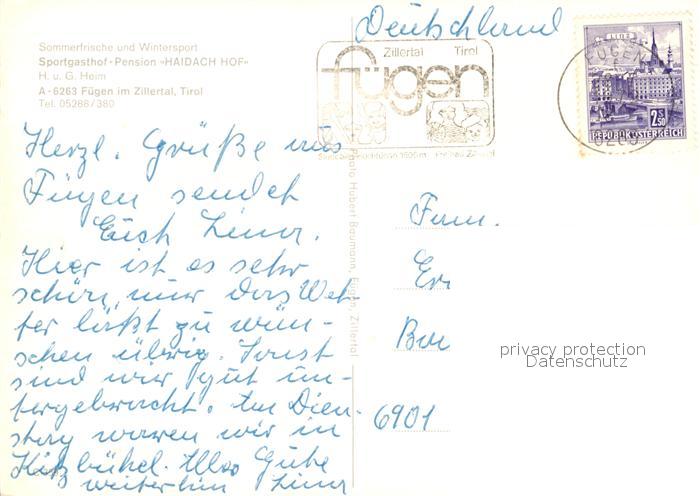 Sommerfrische und Wintersport
Sportgasthof-Pension »HAIDACH HOF«
H. u. G. Heim
A-6263 Fügen im Zillertal, Tirol
Tel. 05288/380
Herzl. Grüße aus
Fügen sendet
Euch
Hier ist es sehr
schön, nur das Wet-
ter läßt zu wün-
schen übrig. Sonst
sind wir gut un-
tergebracht. Am Dien-
stag waren wir in
Kitzbühel. Alles Gute
weiterhin
Photo Hubert Baumann, Fügen, Zillertal
Deutschland
Zillertal Tirol
fügen
LINZ
2 S 50
REPUBLIK ÖSTERREICH
FÜGEN
Fam.
6901
privacy protection
Datenschutz